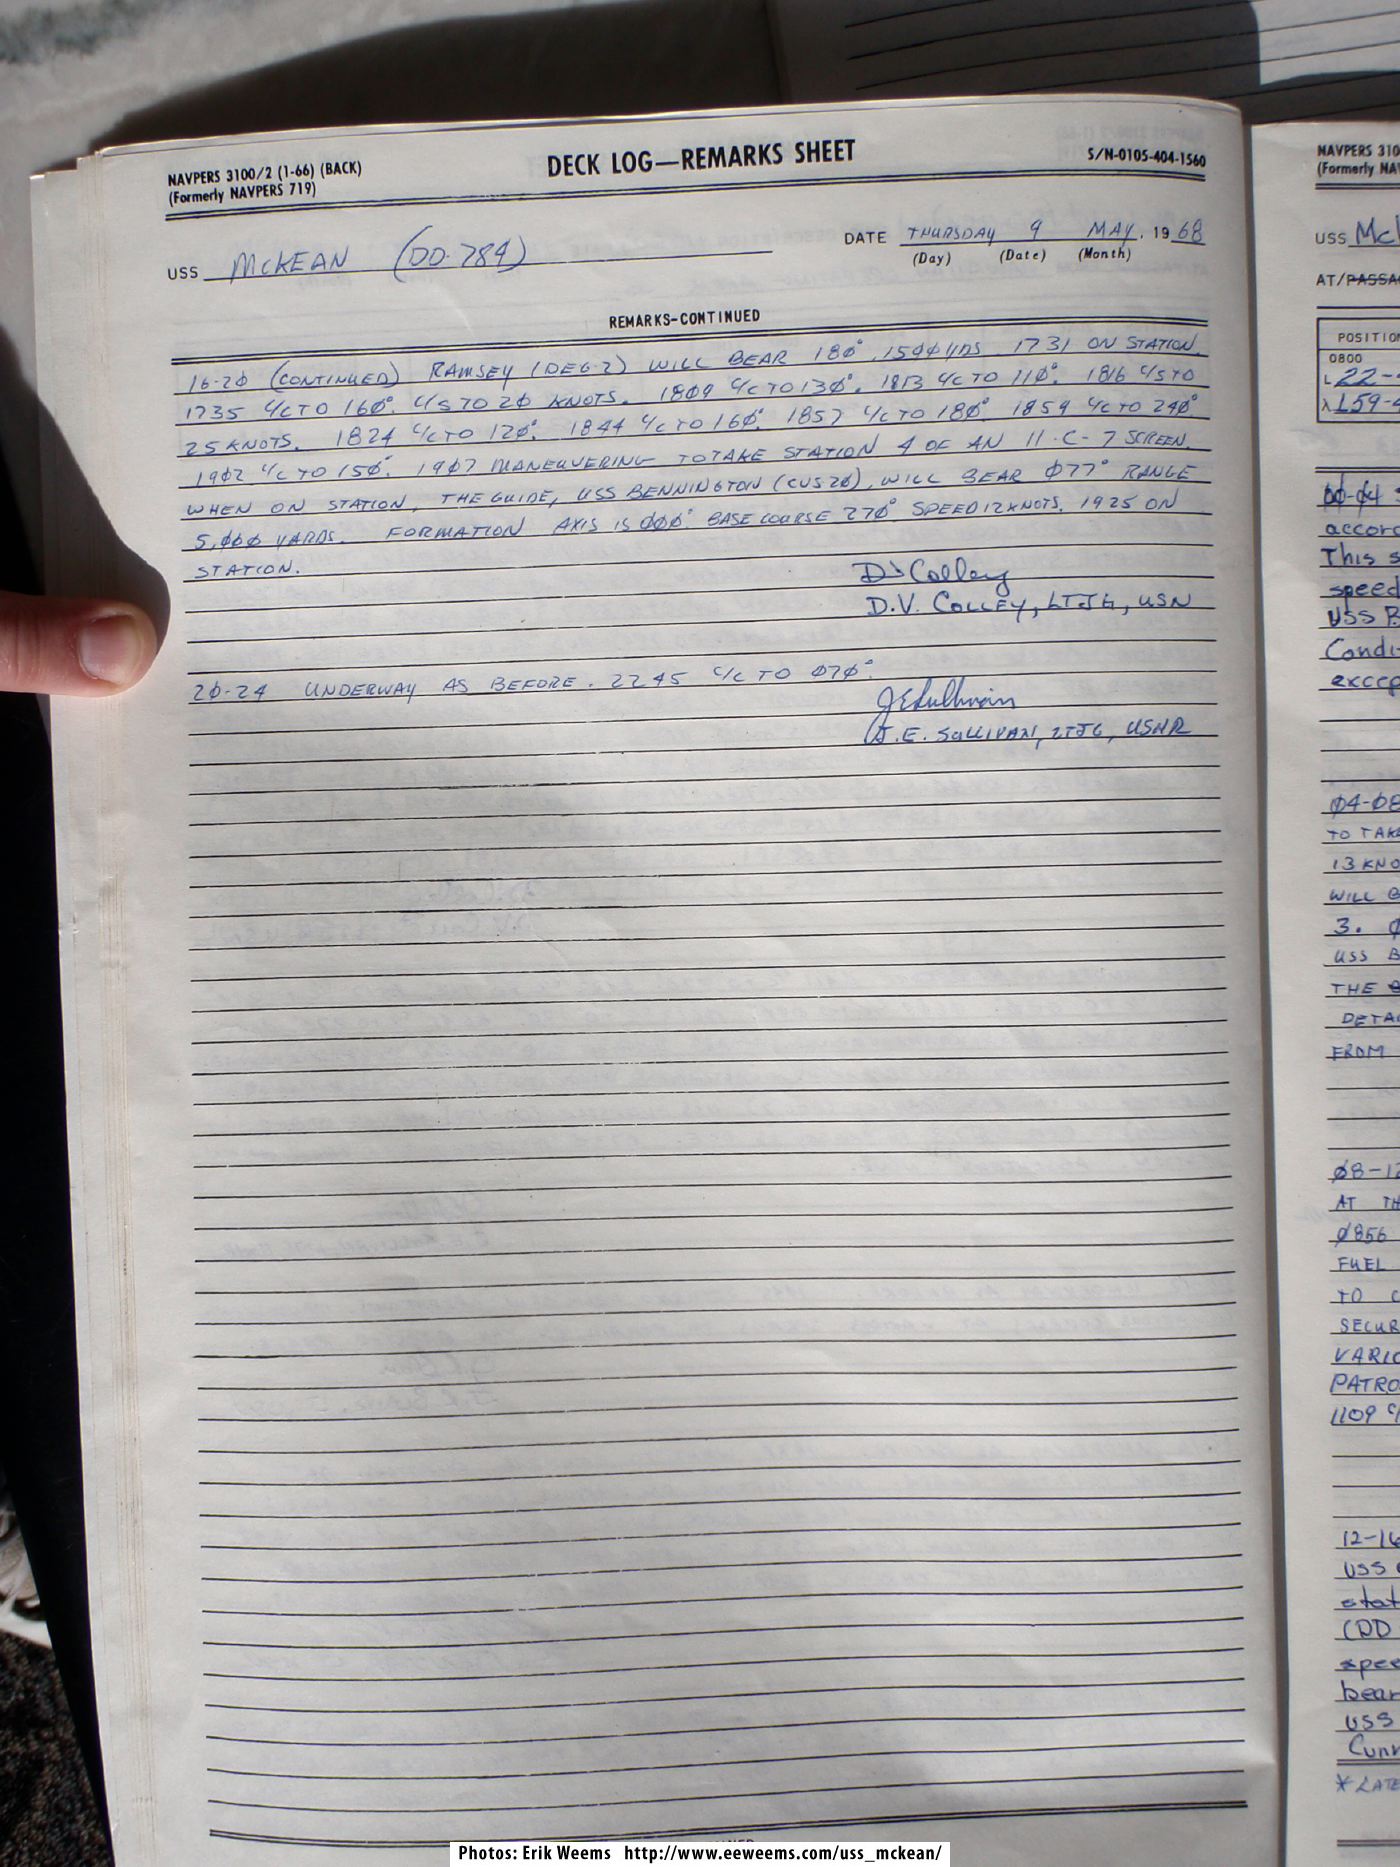 NAVPERS 3100/2 (1-66) (BACK)
(Formerly NAVPERS 719)
DECK LOG—REMARKS SHEET
S/N-0105-404-1560
USS MCKEAN (DD-784)
DATE THURSDAY 9 MAY, 19 68
(Day) (Date) (Month)
REMARKS-CONTINUED
16-20 (CONTINUED) RAMSEY (DEG-2) WILL BEAR 180° 1500 YDS. 1731 ON STATION.
1735 C/C TO 160°. C/S TO 20 KNOTS. 1809 C/C TO 130°. 1813 C/C TO 110°. 1816 C/S TO
25 KNOTS. 1824 C/C TO 120°. 1844 C/C TO 160°. 1857 C/C TO 180° 1859 C/C TO 240°
1902 C/C TO 150°. 1907 MANEUVERING TO TAKE STATION 4 OF AN 11-C-7 SCREEN.
WHEN ON STATION, THE GUIDE, USS BENNINGTON (CVS 20), WILL BEAR 077° RANGE
5,000 YARDS. FORMATION AXIS IS 000°. BASE COURSE 270° SPEED 12 KNOTS. 1925 ON
STATION.
DV Colley
D.V. COLLEY, LTJG, USN
20-24 UNDERWAY AS BEFORE. 2245 C/C TO 070°.
JE Sullivan
J.E. SULLIVAN, LTJG, USNR
NAVPERS 310
(Formerly NA
USS McK
AT/PASSA
POSITION
0800
L 22-
λ 159-4
00-04
accord
This s
speed
USS B
Condi
excep
04-08
TO TAK
13 KNO
WILL B
3.
USS B
THE
DETA
FROM
08-12
AT TH
0856
FUEL
TO C
SECUR
VARIO
PATRO
1109 C/
12-16
USS
stat
(DD
spee
bear
USS
Cunn
* LATE
Photos: Erik Weems http://www.eeweems.com/uss_mckean/